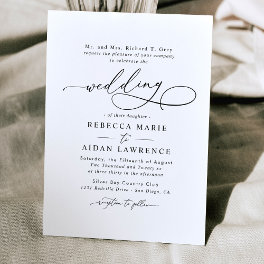 Mr. and Mrs. Richard T. Grey
request the pleasure of your company
to celebrate the
wedding
- of their daughter -
REBECCA MARIE
to
AIDAN LAWRENCE
Saturday, the Fifteenth of August
Two Thousand and Twenty
at thirty in the afternoon
Silver Bay Country Club
Drive - San Diego, CA
reception to follow